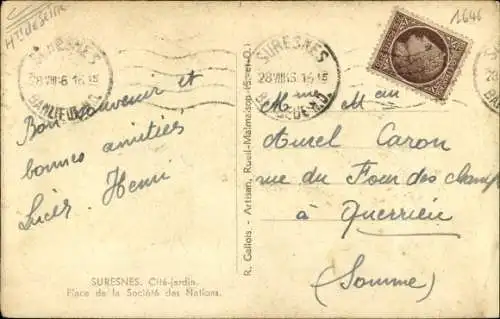 Hts de Seine
1646
SURESNES
28 VIII 6 16 15
BANLIEUE
SURESNES
28 VIII 6 16 15
Bon souvenir et
bonnes amitiés
Henri
SURESNES. Cité-jardin.
Place de la Société des Nations.
R. Gallois - Artisan, Rueil-Malmaison (S.-et-O.)
Aurel Caron
rue du Four des champs
à Querrieu
(Somme)